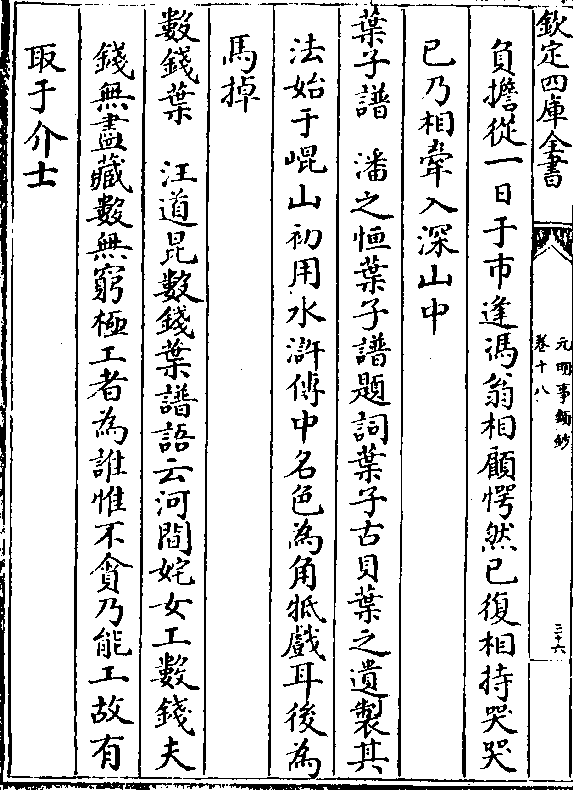 欽定四庫全書
元明事類鈔
卷十八
三十六
負擔從一日于市逢馮翁相顧愕然已復相持哭哭
已乃相牽入深山中
葉子譜　潘之恒葉子譜題詞葉子古貝葉之遺製其
法始于崐山初用水滸傳中名色為角觝戲耳後為
馬掉
數錢葉　汪道昆數錢葉譜語云河間姹女工數錢夫
錢無盡藏數無窮極工者為誰惟不貪乃能工故有
取于介士